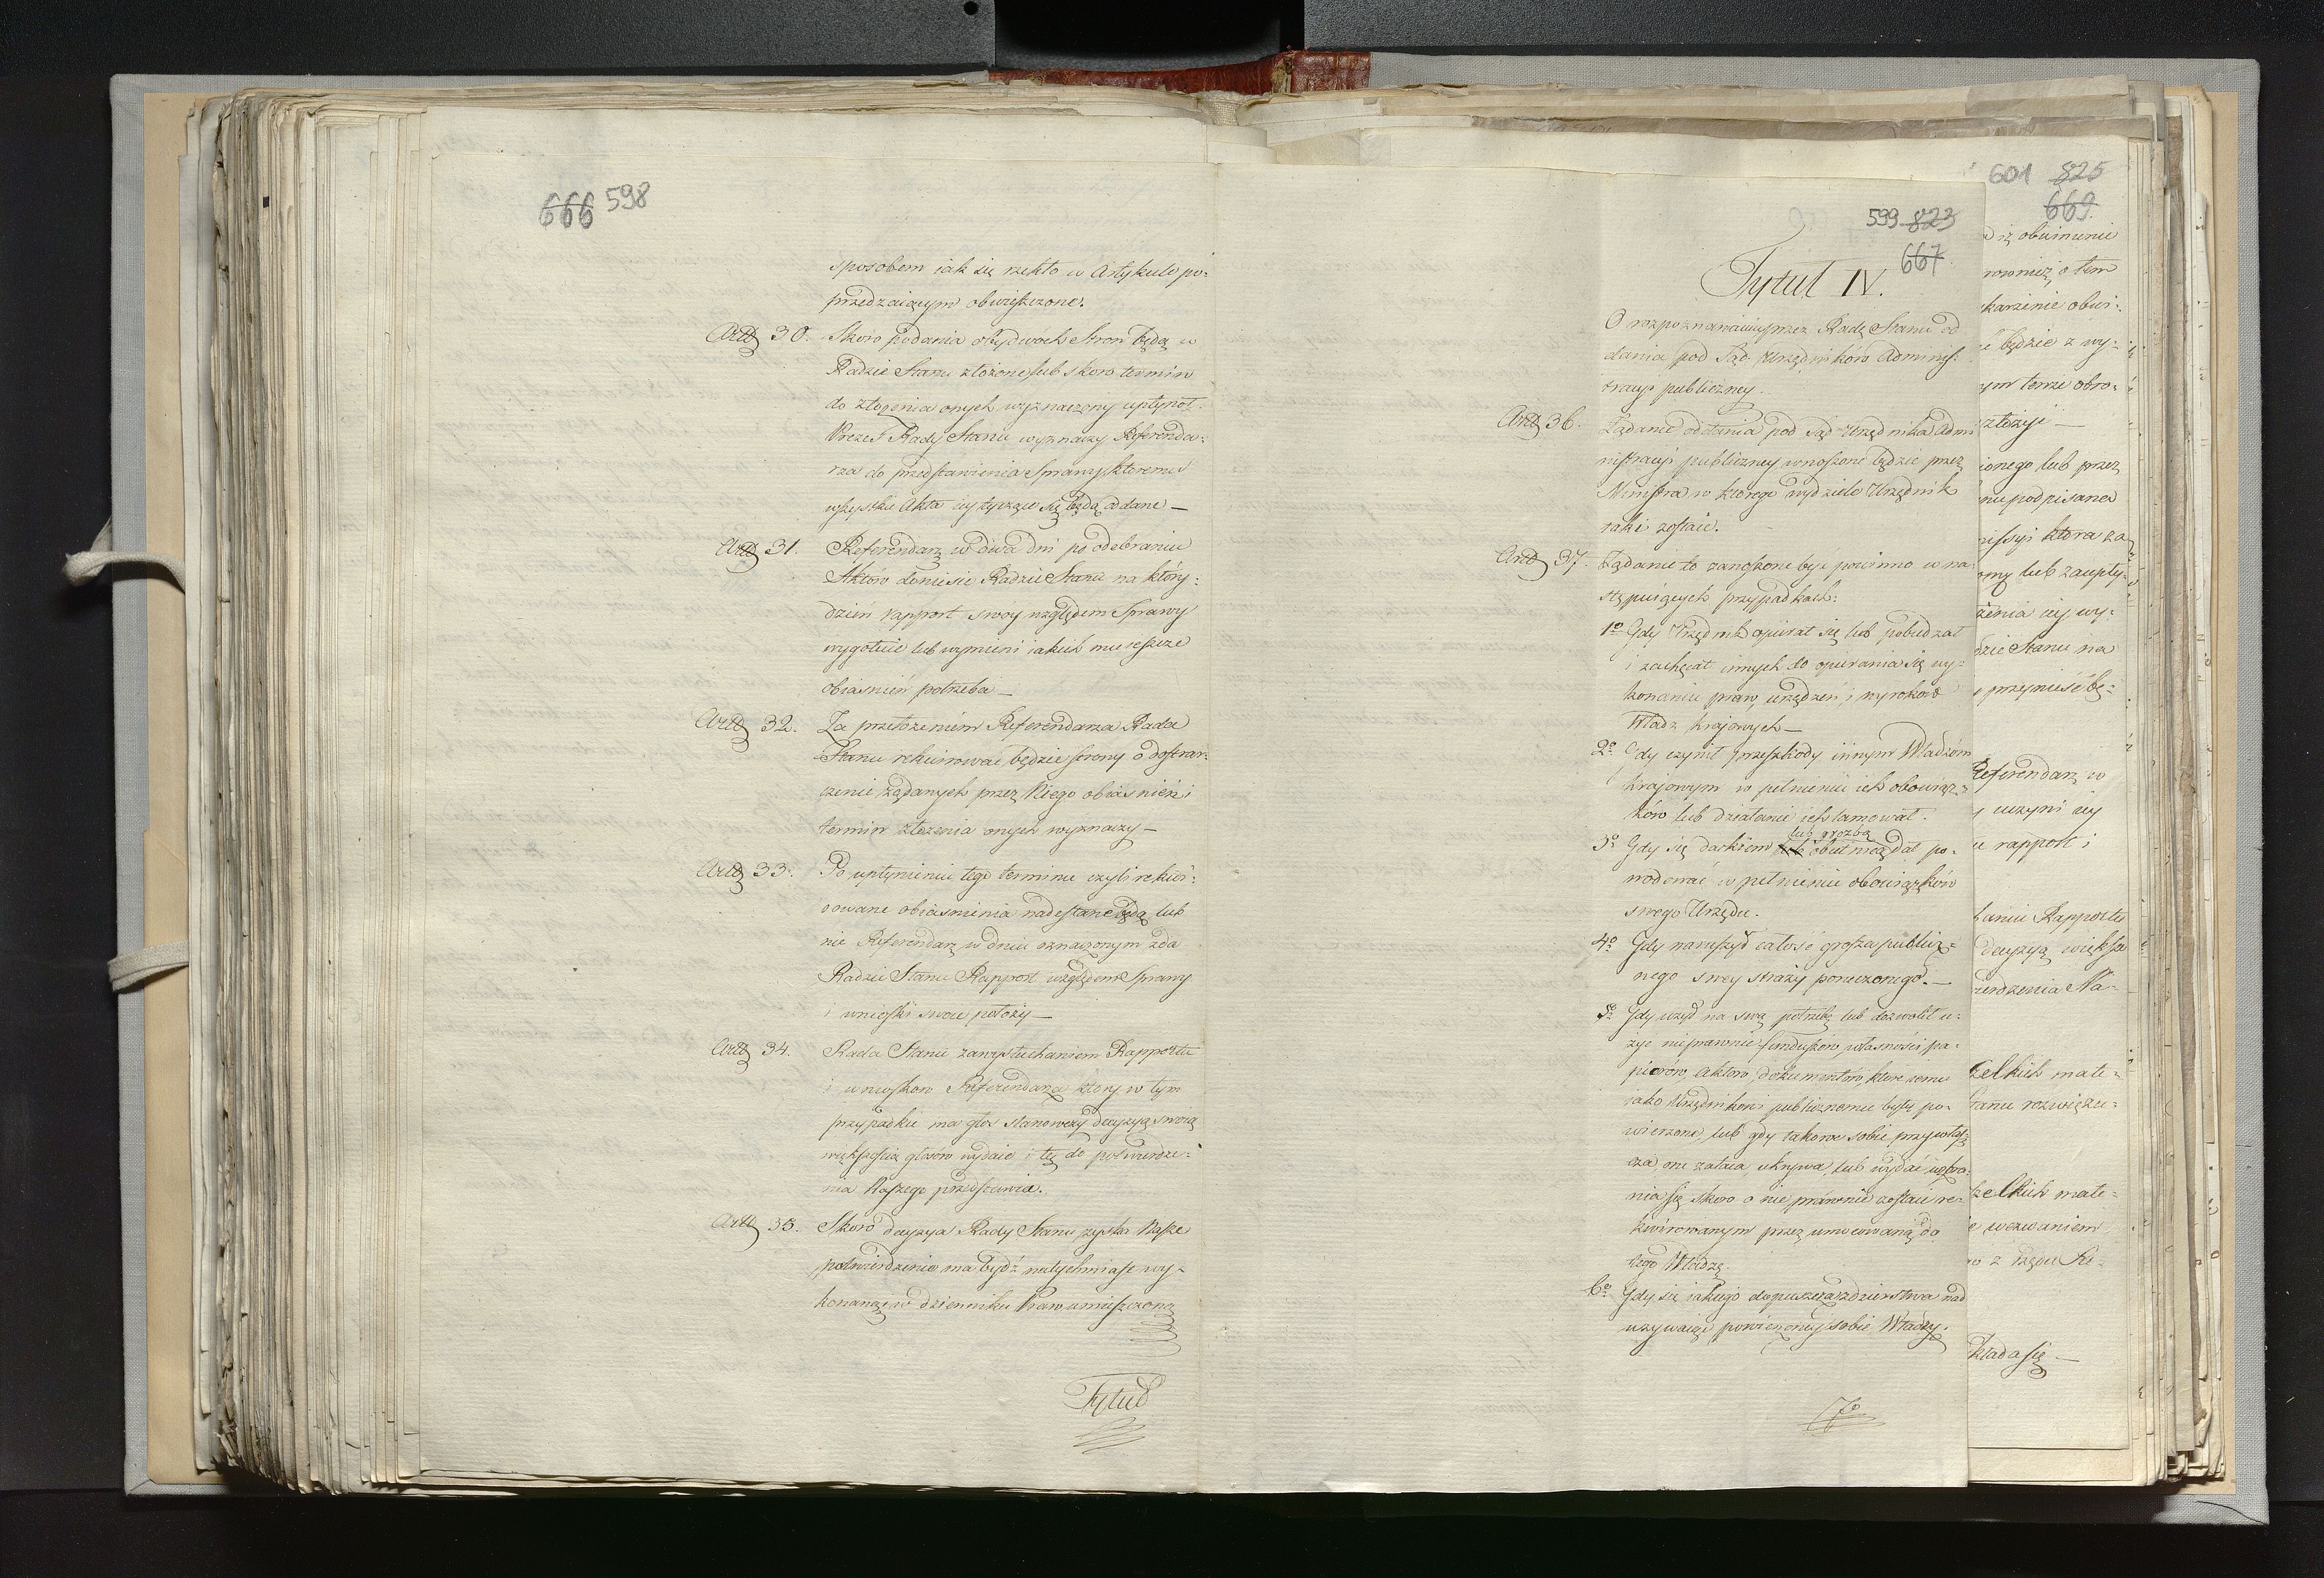 666 598
sposobem iak się rzekło w Artykule po-
przedzaiącym obwieszczone.
Artt 30. Skoro podania obydwóch Stron będą w
Radzie Stanu złożone lub skoro termin
do złożenia onych wyznaczony upłynoł.
Prezes Rady Stanu wyznaczy Referenda-
rza do przedstawienia Sprawy ktoremu
wszystkie Akta iey tyczące się będą oddane —
Artt 31. Referendarz w dwa dni po odebraniu
Aktów doniesie Radzie Stanu na który
dzień rapport swoy względem Sprawy
wygotuie lub wymieni iakich mu ieszcze
obiasnień potrzeba —
Artt 32. Za przełożeniem Referendarza Rada
Stanu rekwirować będzie strony o dostar-
czenie żądanych przez Niego obiasnień i
termin złożenia onych wyznaczy —
Artt 33. Po upłynieniu tego terminu czyli rekwi-
rowane obiasnienia nadesłane będą lub
nie Referendarz w dniu oznaczonym zda
Radzie Stanu Rapport względem Sprawy
i wnioski swoie położy —
Artt 34. Rada Stanu za wysłuchaniem Rapportu
i wnioskow Referendarza który w tym
przypadku ma głos stanowczy decyzyą swoią
większością głosów wydaie i tę do potwierdze-
nia Naszego przedstawia.
Artt 35. Skoro decyzya Rady Stanu zyska Nasze
potwierdzenie ma bydź natychmiast wy-
konaną i w dzienniku Praw umieszczoną
Tytuł
599 823
667
Tytuł IV.
O rozpoznawaniu przez Radę Stanu od
dania pod Sąd Urzędników Adminis-
tracyi publiczney
Artt 36. Żądanie oddania pod Sąd Urzędnika Admi
nistracyi publiczney wnoszone będzie przez
Ministra w ktorego wydziele Urzędnik
taki zostaie.
Artt 37. Żądanie to zanoszone być powinno w na
stępuiących przypadkach:
1o Gdy Urzędnik opierał się lub pobudzał
i zachęcał innych do opierania się wy-
konaniu praw, urządzeń i wyrokow
Władz krajowych —
2o Gdy czynił przeszkody innym Władzom
krajowym w pełnieniu ich obowiąz-
ków lub działanie ich tamował.
lub groźbą
3o Gdy się datkiem lub obietnicą dał po-
wodować w pełnieniu obowiązków
swego Urzędu.
4o Gdy naruszył całość grosza publicz-
nego swey straży poruczonego. —
5o Gdy użył na swą potrzebę lub dozwolił u-
żyć nieprawnie funduszow własności pa-
pierów, aktow, dokumentów, które iemu
iako Urzędnikowi publicznemu były po-
wierzone, lub gdy takowe sobie przywłasz
cza, one zataia, ukrywa, lub wydać wzbra-
nia się skoro o nie prawnie zostaie re-
kwirowanym przez umocowaną do
tego Władzę.
6o Gdy się iakiego dopuszcza zdzierstwa nad
używaiąc powierzoney sobie Władzy.
7o
601 825
669
iż obwinienie
rownież o tem
skarżenie obwi-
będzie z wy-
ym termie obro-
złożyć —
ionego lub przez
nu podpisanea
missyi ktora za
lub zaupły-
żenia iey wy-
dzie Stanu na
przynieść bę-
Referendarz w
uczyni iey
rapport i
haniu Rapportu
decyzyą większo
ierdzenia Na-
zelkich mate-
Stanu rozwiąza-
zelkich mate-
wezwaniem
z rzędu Re-
kłada się —